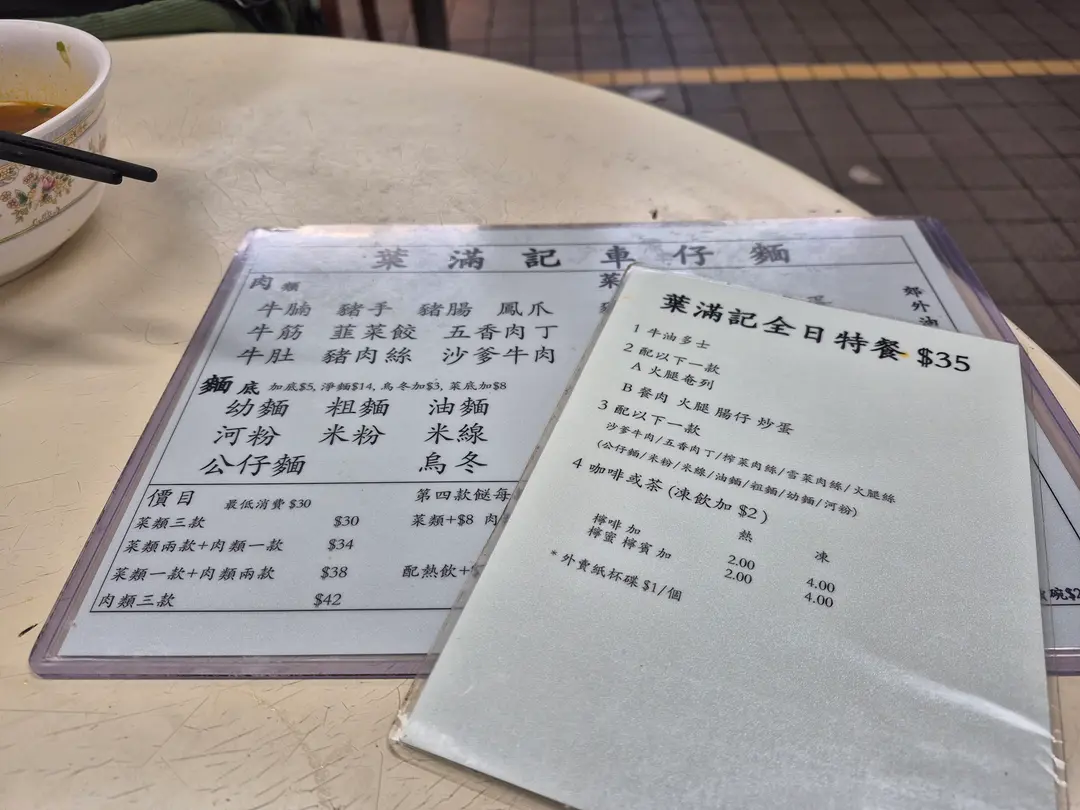 葉滿記車仔麵
肉類
牛腩 豬手 豬腸 鳳爪
牛筋 韮菜餃 五香肉丁
牛肚 豬肉絲 沙爹牛肉
菜
郊外油
麵底 加底$5, 淨麵$14, 烏冬加$3, 菜底加$8
幼麵 粗麵 油麵
河粉 米粉 米線
公仔麵 烏冬
價目 最低消費 $30
菜類三款 $30
菜類兩款+肉類一款 $34
菜類一款+肉類兩款 $38
肉類三款 $42
第四款餸每
菜類+$8 肉
配熱飲+
碗$2
葉滿記全日特餐 $35
1 牛油多士
2 配以下一款
A 火腿奄列
B 餐肉 火腿 腸仔 炒蛋
3 配以下一款
沙爹牛肉/五香肉丁/榨菜肉絲/雪菜肉絲/火腿絲
(公仔麵/米粉/米線/油麵/粗麵/幼麵/河粉)
4 咖啡或茶 (凍飲加 $2)
熱 凍
檸啡 加 2.00 4.00
檸蜜 檸賓 加 2.00 4.00
* 外賣紙杯碟 $1/個